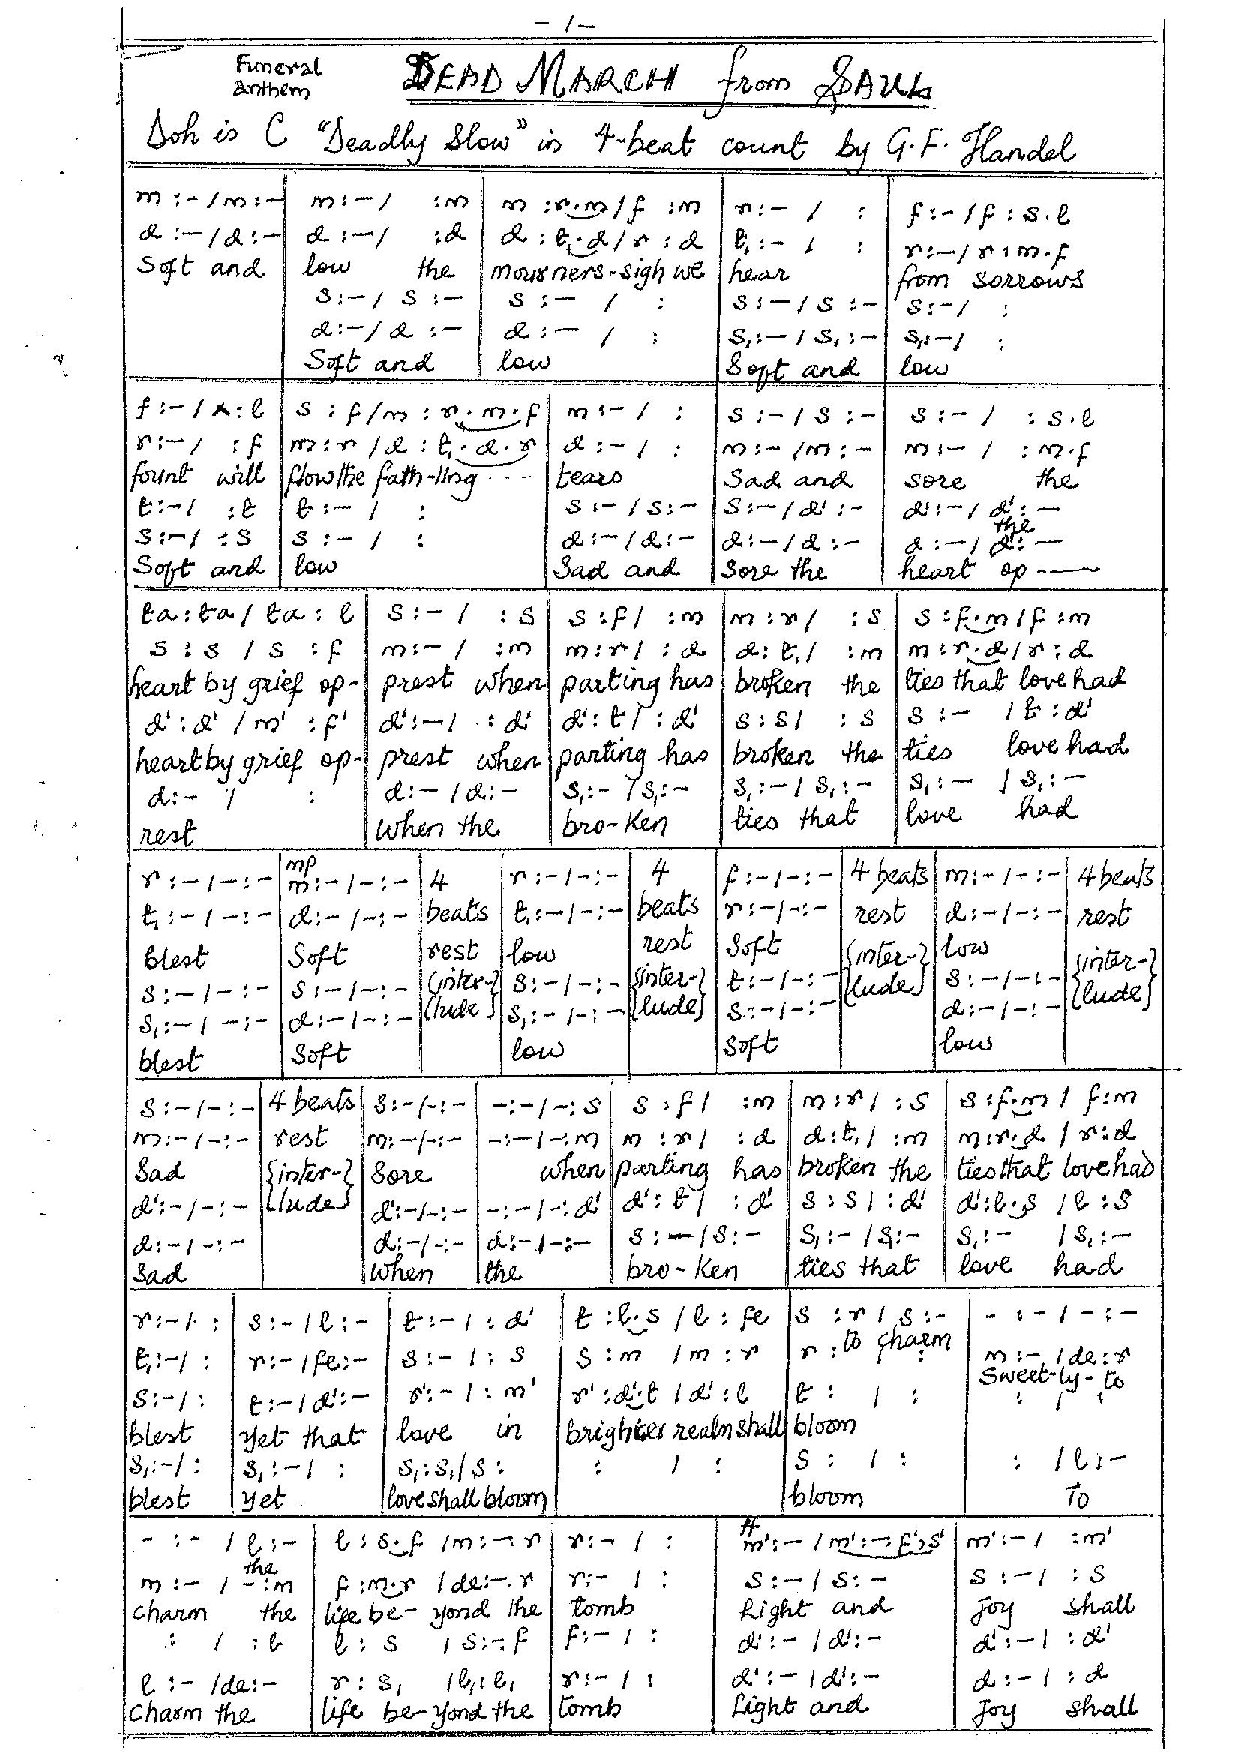 - 1 -
Funeral anthem DEAD MARCH from SAUL
Doh is C "Deadly Slow" in 4-beat count by G.F. Handel
m :- / m :- | m :- / :m | m :r.m / f :m | r :- / : | f :- / f : s.l
d :- / d :- | d :- / :d | d : t₁.d / r : d | t₁ :- / : | r :- / r : m.f
Soft and | low the | mourners-sigh we | hear | from sorrows
s :- / s :- | s :- / : | s :- / s :- | s :- / :
d :- / d :- | d :- / : | s₁ :- / s₁ :- | s₁ :- / :
Soft and | low | Soft and | low
f :- / : l | s : f / m : r.m.f | m :- / : | s :- / s :- | s :- / : s.l
r :- / : f | m : r / d : t₁.d.r | d :- / : | m :- / m :- | m :- / : m.f
fount will | flow the fath-ling | tears | Sad and | sore the
t :- / : t | t :- / : | s :- / s :- | s :- / d' :- | d' :- / d' :-
the
s :- / : s | s :- / : | d :- / d :- | d :- / d :- | d :- / d' :-
Soft and | low | Sad and | Sore the | heart op
ta : ta / ta : l | s :- / : s | s : f / : m | m : r / : s | s : f.m / f : m
s : s / s : f | m :- / : m | m : r / : d | d : t₁ / : m | m : r.d / r : d
heart by grief op- | prest when | parting has | broken the | ties that love had
d' : d' / m' : f' | d' :- / : d' | d' : t / : d' | s : s / : s | s :- / t : d'
heart by grief op- | prest when | parting has | broken the | ties love had
d :- / : | d :- / d :- | s₁ :- / s₁ :- | s₁ :- / s₁ :- | s₁ :- / s₁ :-
rest | when the | bro-ken | ties that | love had
mp
r :- / - :- | m :- / - :- | 4 | r :- / - :- | 4 | f :- / - :- | 4 beats | m :- / - :- | 4 beats
t₁ :- / - :- | d :- / - :- | beats | t₁ :- / - :- | beats | r :- / - :- | rest | d :- / - :- | rest
blest | Soft | rest | low | rest | Soft | {inter-} | low | {inter-}
s :- / - :- | s :- / - :- | {inter-} | s :- / - :- | {inter-} | t :- / - :- | {lude} | s :- / - :- | {lude}
s₁ :- / - :- | d :- / - :- | {lude} | s₁ :- / - :- | {lude} | s :- / - :- | d :- / - :-
blest | Soft | low | Soft | low
s :- / - :- | 4 beats | s :- / - :- | - :- / - : s | s : f / : m | m : r / : s | s : f.m / f : m
m :- / - :- | rest | m :- / - :- | - :- / - : m | m : r / : d | d : t₁ / : m | m : r.d / r : d
Sad | {inter-} | Sore | when | parting has | broken the | ties that love had
d' :- / - :- | {lude} | d' :- / - :- | - :- / - : d' | d' : t / : d' | s : s / : d' | d' : l.s / l : s
d :- / - :- | d :- / - :- | d :- / - :- | s :- / s :- | s₁ :- / s₁ :- | s₁ :- / s₁ :-
Sad | when | the | bro-ken | ties that | love had
r :- / : | s :- / l :- | t :- / : d' | t : l.s / l : fe | s : r / s :- | - :- / - :-
t₁ :- / : | r :- / fe :- | s :- / : s | s : m / m : r | r : to charm : | m :- / de : r
Sweet-ly-to
s :- / : | t :- / d' :- | r' :- / : m' | r' : d'.t / d' : l | t : / : | : / :
blest | yet that | love in | brighter realm shall | bloom
s₁ :- / : | s₁ :- / : | s₁ : s₁ / s : | : / : | s : / : | : / l :-
blest | yet | love shall bloom | bloom | To
- :- / l :- | l : s.f / m :-. r | r :- / : | ff m' :- / m' :-. f'.s' | m' :- / : m'
the
m :- / - : m | f : m.r / de :-. r | r :- / : | s :- / s :- | s :- / : s
charm the | life be-yond the | tomb | Light and | Joy shall
: / : l | l : s / s :-. f | f :- / : | d' :- / d' :- | d' :- / : d'
l :- / de :- | r : s₁ / l₁ : l₁ | r :- / : | d' :- / d' :- | d :- / : d
charm the | life be-yond the | tomb | Light and | Joy shall